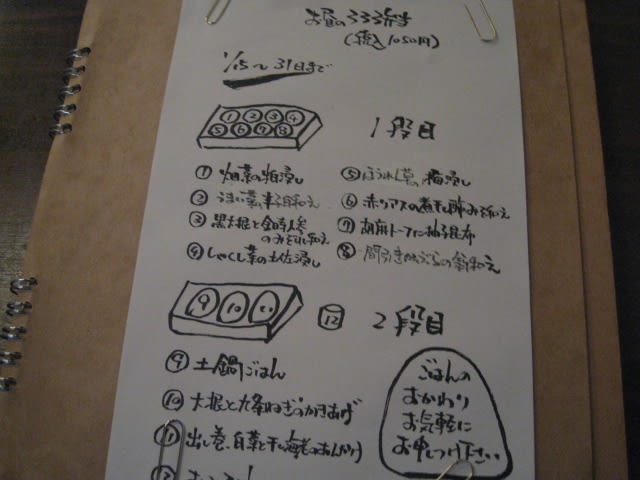 お昼のろろろ弁当
(税込1050円)
1/15~31日まで
① ② ③ ④
⑤ ⑥ ⑦ ⑧
1段目
① 畑菜の粕浸し
② うまい菜の辛子和え
③ 黒大根と金時人参
のみぞれ和え
④ しゃくし菜の土佐浸し
⑤ ほうれん草の梅浸し
⑥ 赤リアスの煮干し酢みそ和え
⑦ 胡麻トーフに柚子昆布
⑧ 間引きかぶらの和え
⑨ ⑩ ⑪
⑫
2段目
⑨ 土鍋ごはん
⑩ 大根と九条ねぎのかきあげ
⑪ 出し巻、白菜と干し海老のあんかけ
ごはんの
おかわり
お気軽に
お申しつけ下さい